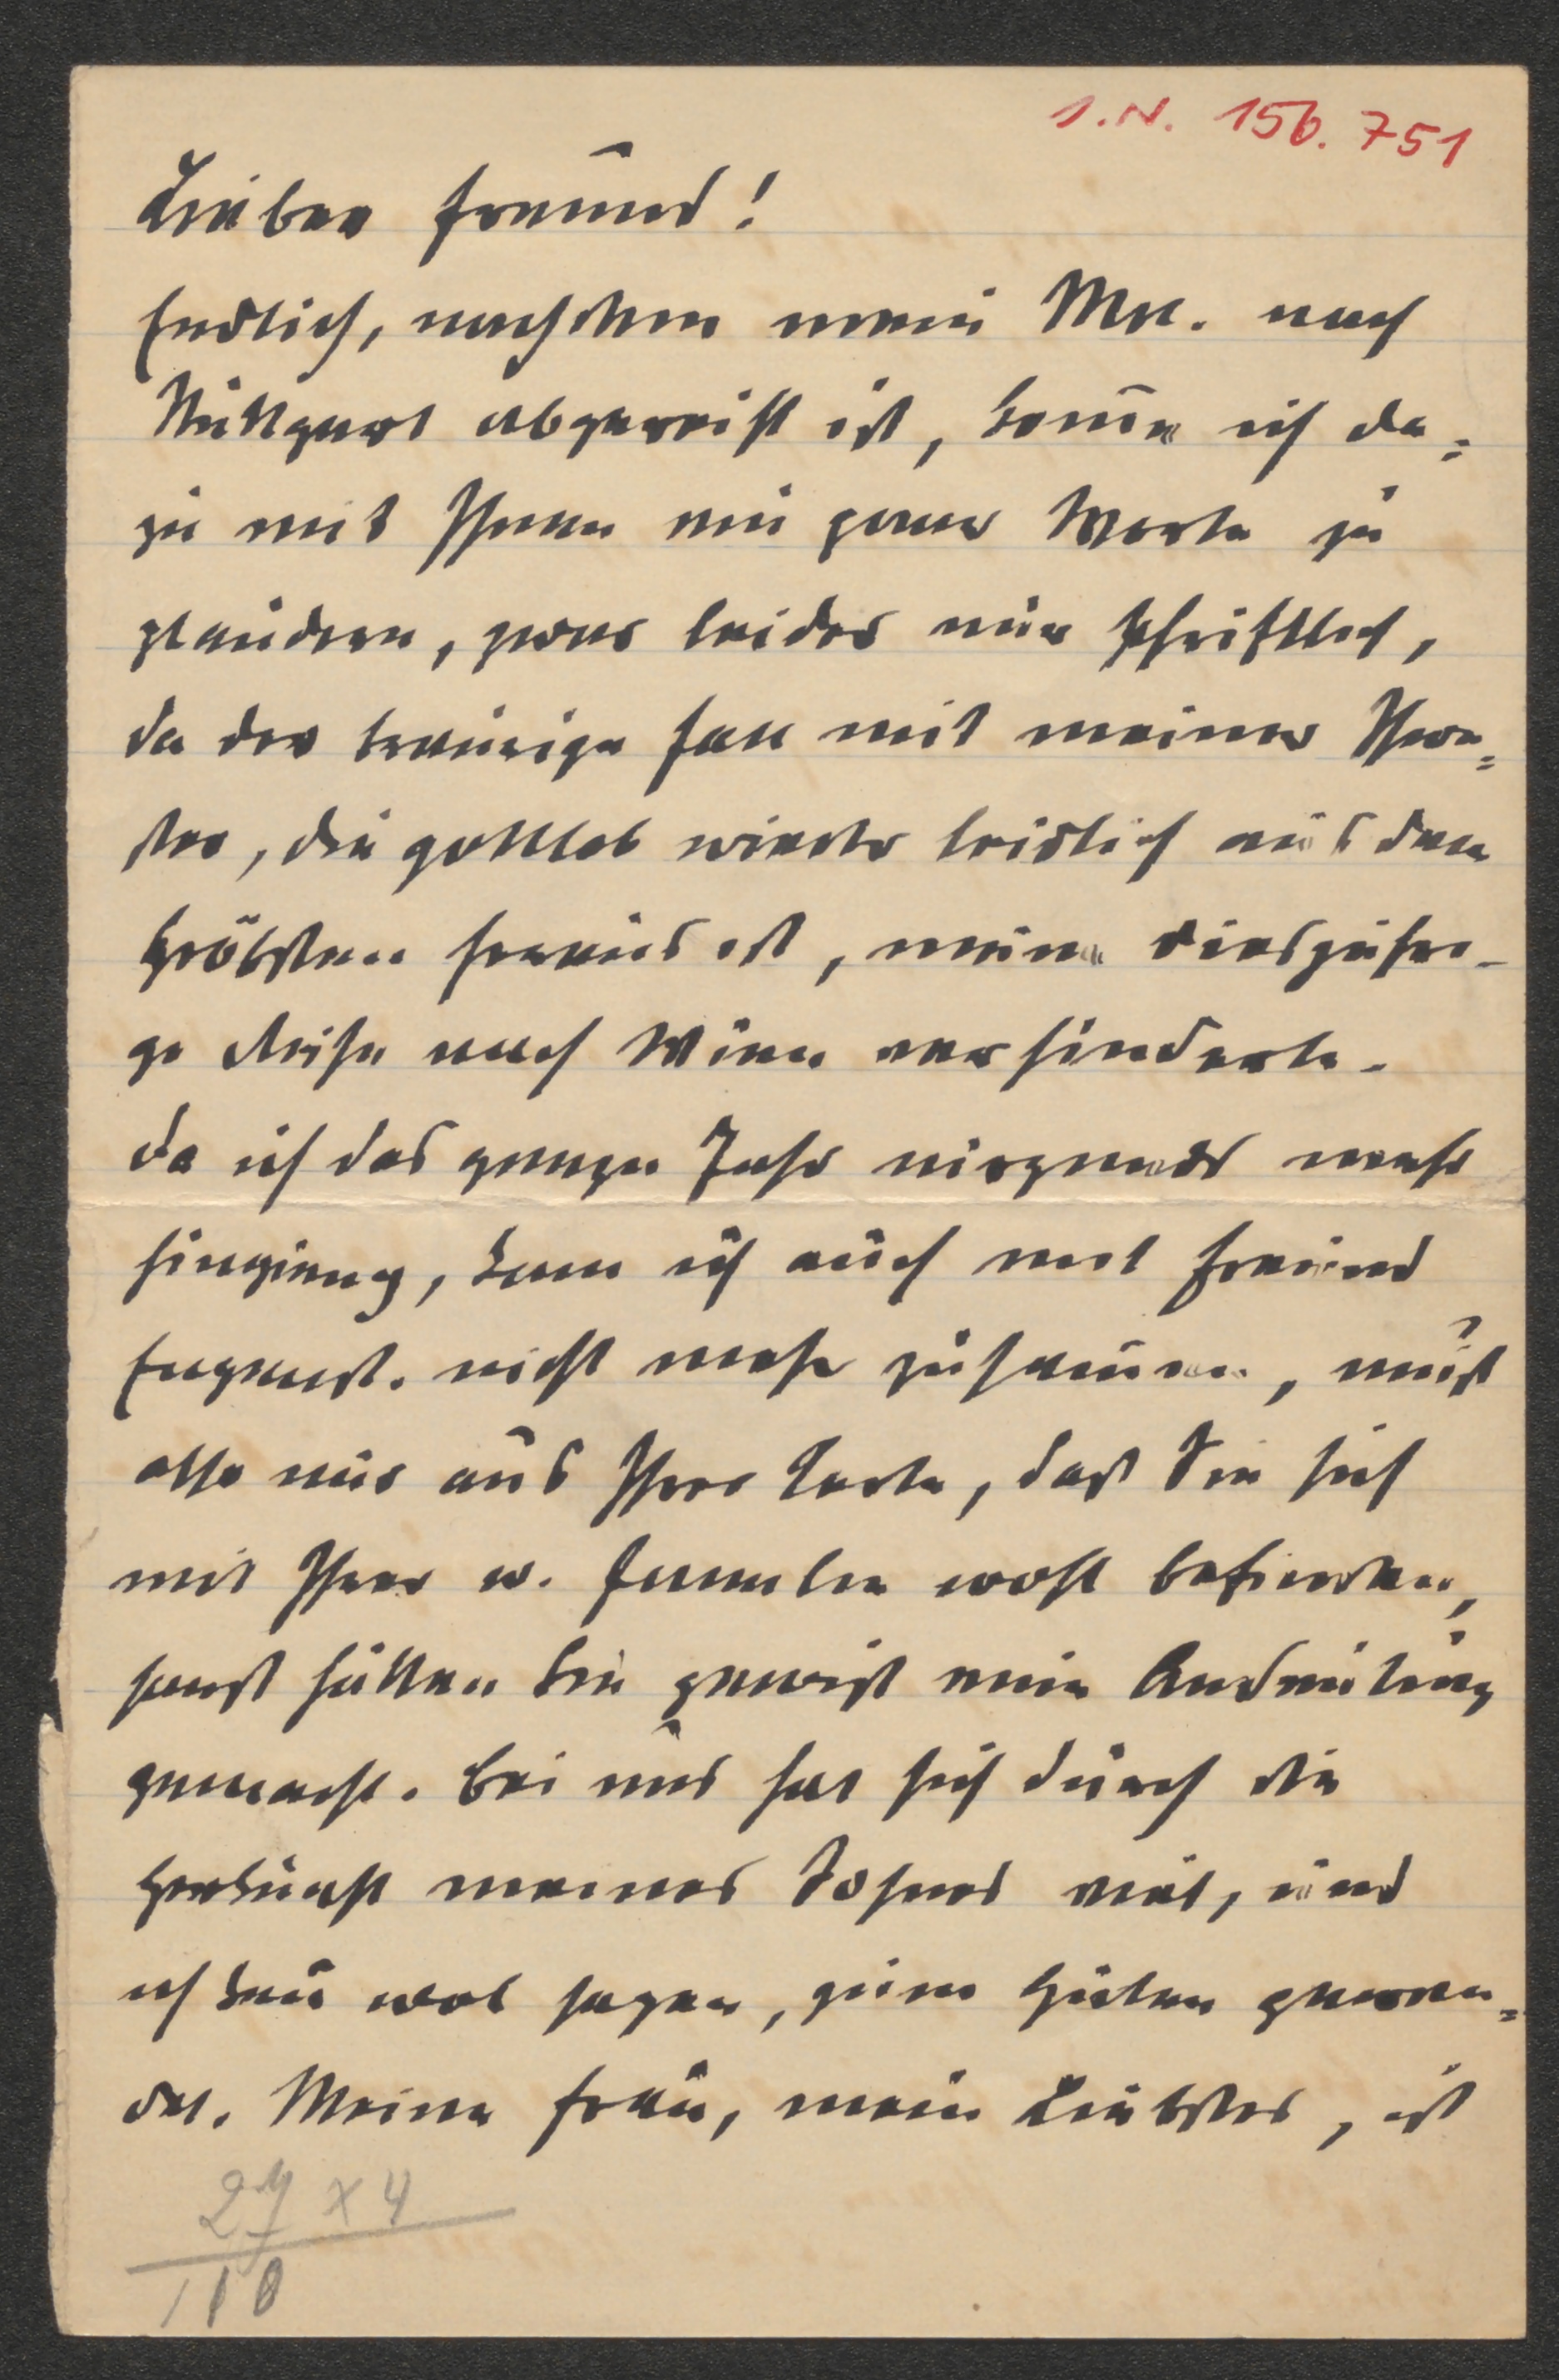 I.N. 156.751
Lieber Freund!
Endlich, nachdem mein Mst. nach
Stuttgart abgereist ist, komme ich da=
zu mit Ihnen ein paar Worte zu
plaudern, zwar leider nur schriftlich,
da der traurige Fall mit meiner Schwe=
ster, die gottlob wieder leidlich aus dem
Gröbsten heraus ist, meine diesjähri-
ge Reise nach Wien verhinderte.
Da ich das ganze Jahr nirgends mehr
hinging, kam ich auch mit Freund
nicht mehr zusammen, muß
also nur aus Ihrer Karte, daß Sie sich
mit Ihrer w. Familie wohl befinden,
sonst hätten Sie gewiß eine Andeutung
gemacht. Bei uns hat sich durch die
Herkunft meines Sohnes viel, und
ich kañ wol sagen, zum Guten gewen=
det. Meine Frau, mein Liebstes, ist
27 x 4
110